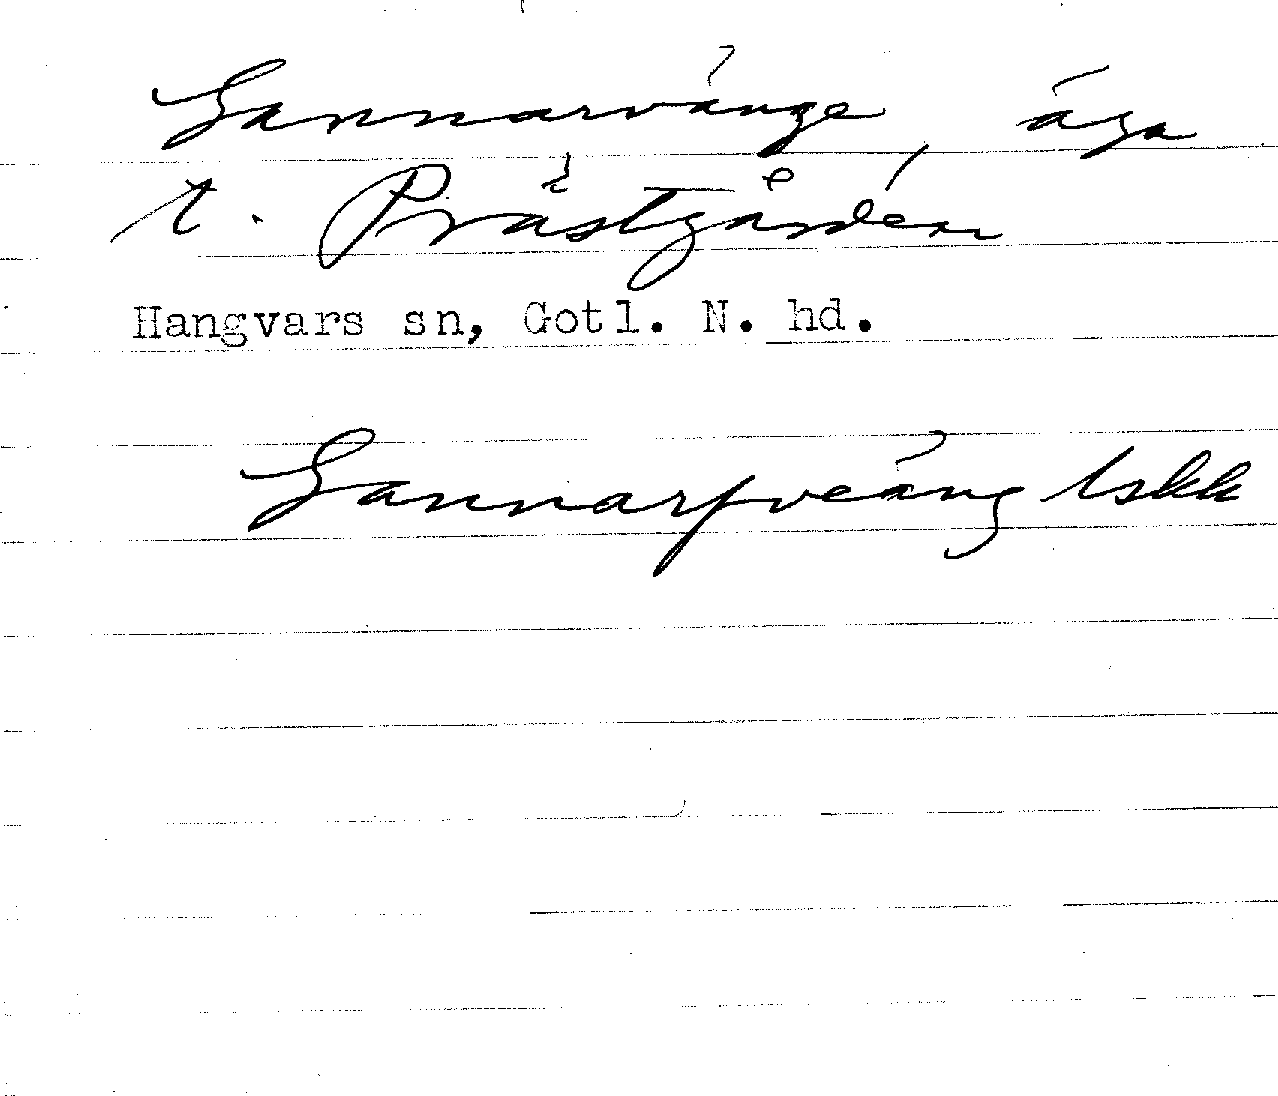 Gannarvänge, äga
t. Prästgården
Hangvars sn, Gotl. N. hd.
Gannarfveäng lskk